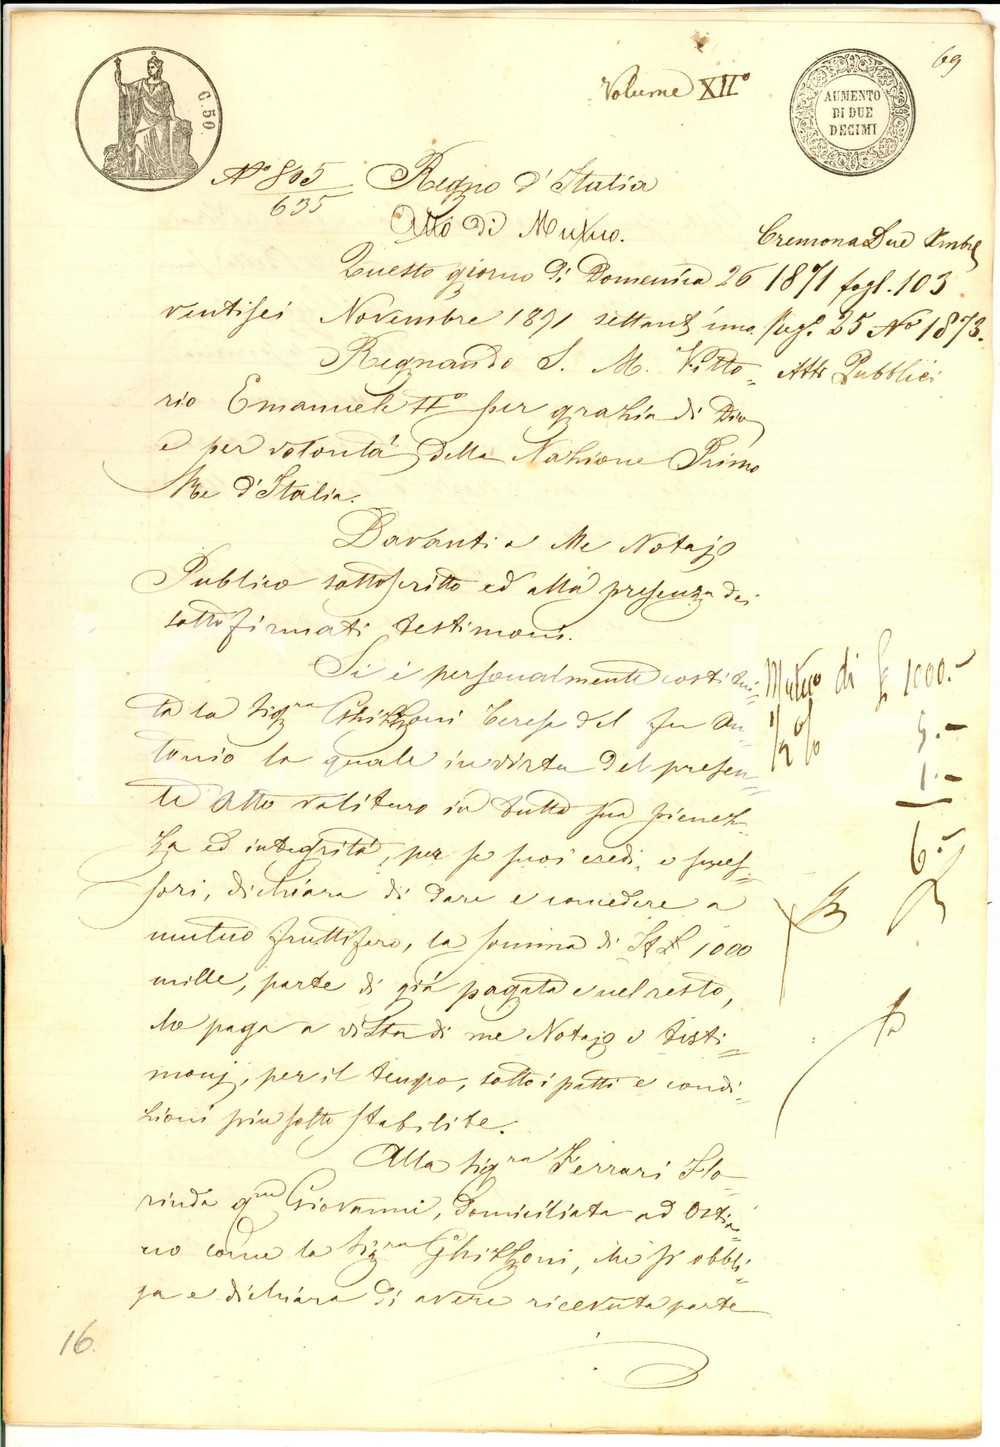 69
Volume XII°
C. 50.
AUMENTO
DI DUE
DECIMI
N° 805
635
Regno d'Italia
Atto di Mutuo.
Questo giorno di Domenica 26
ventisei Novembre 1871 settant'uno.
Regnando S. M. Vitto=
rio Emanuele II° per grazia di Dio
e per volontà della Nazione Primo
Re d'Italia.
Davanti a Me Notajo
Publico sottoscritto ed alla presenza dei
sottofirmati testimoni.
Si è personalmente costitui=
ta la Sig.ra Ghizzoni Teresa del fu An=
tonio la quale in virtu del presen=
te Atto valituro in tutta sua pienez=
za ed integrità, per se suoi eredi, e succes=
sori, dichiara di dare e concedere a
mutuo fruttifero, la somma di It £ 1000
mille, parte di già pagata e nel resto,
che paga a vista di me Notajo e testi=
monj, per il tempo, sotto i patti e condi=
zioni più sotto stabilite.
Alla Sig.ra Ferrari Flo=
rinda qm Giovanni, domiciliata ad Ostia=
no come la Sig.ra Ghizzoni, che si obbli=
ga e dichiara di avere ricevuta parte
Cremona Due Xmbre
1871 fogl. 103
N° 1873.
Atti Pubblici
Mutuo di £ 1000.-
1/2 %
5.-
1.-
6.-
16.